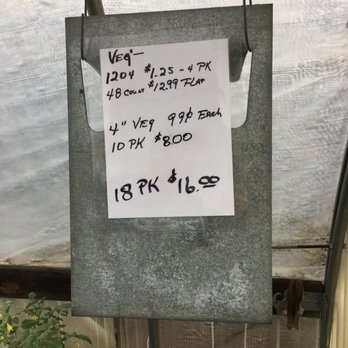 VEG'—
1204 $1.25 - 4 PK
48 COUNT $12.99 FLAT
4" VEG 99¢ EACH
10 PK $8.00
18 PK $16.00